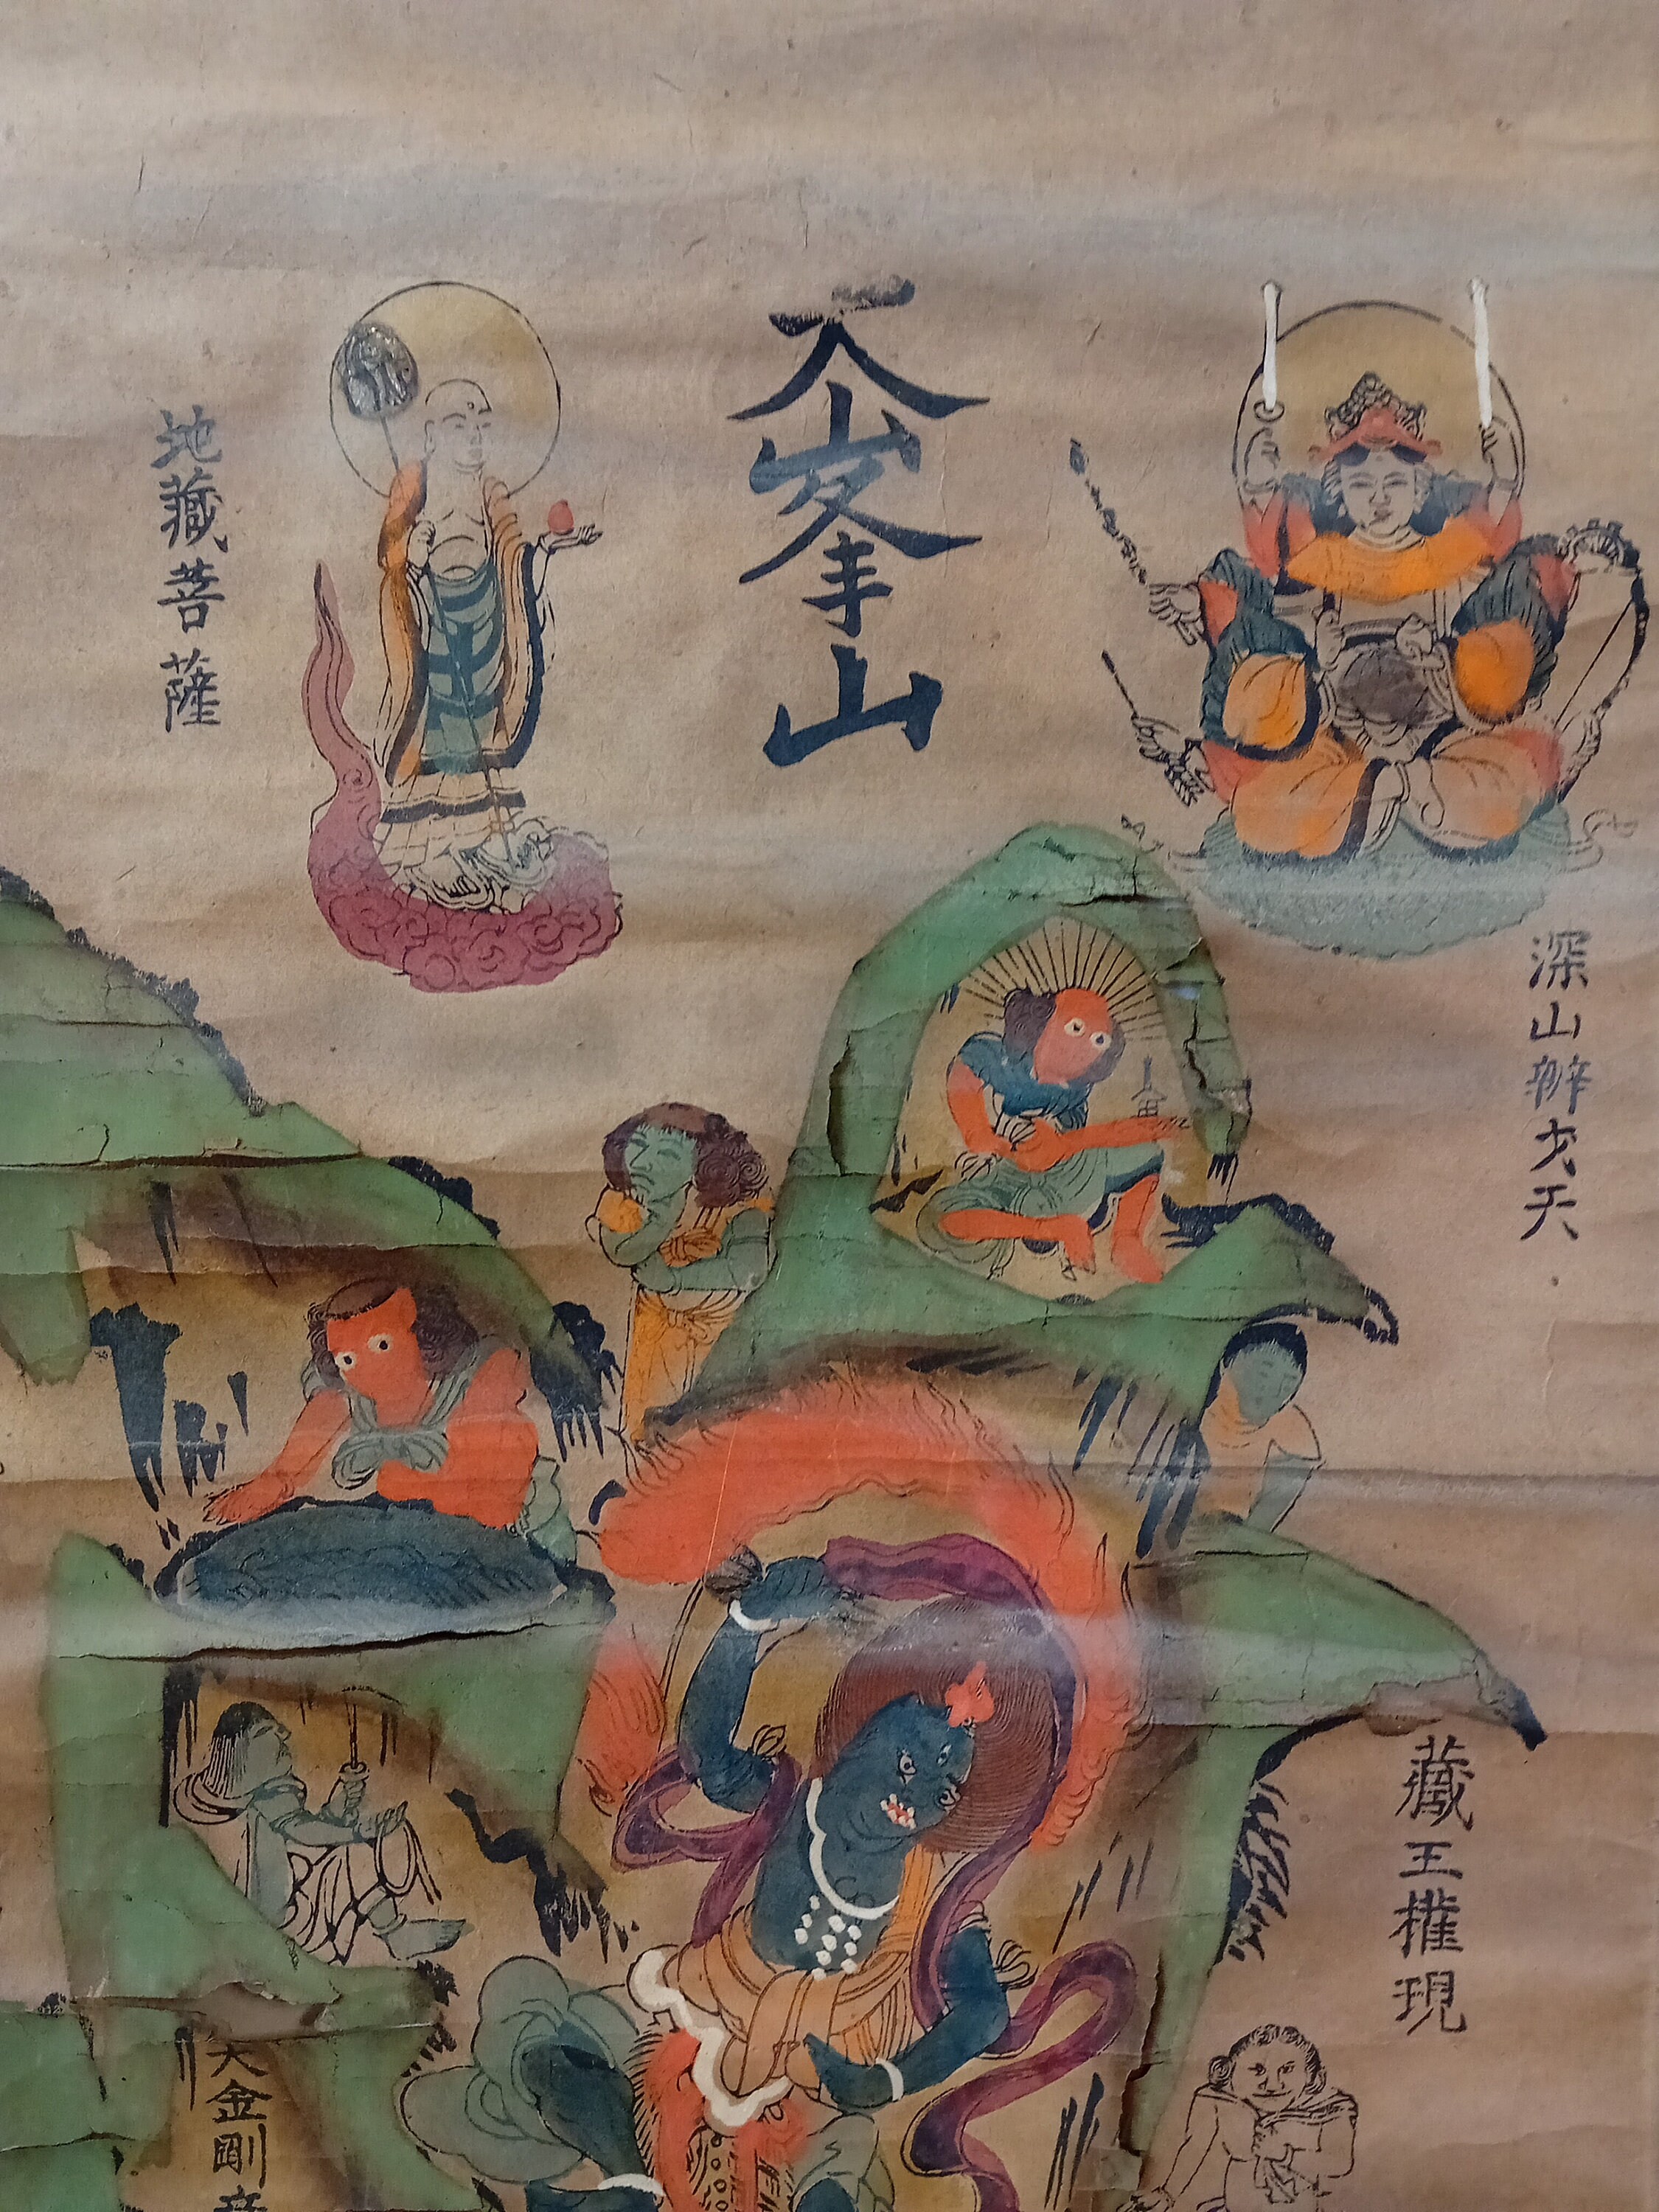 大峯山
深山辨才天
地藏菩薩
藏王權現
大金剛